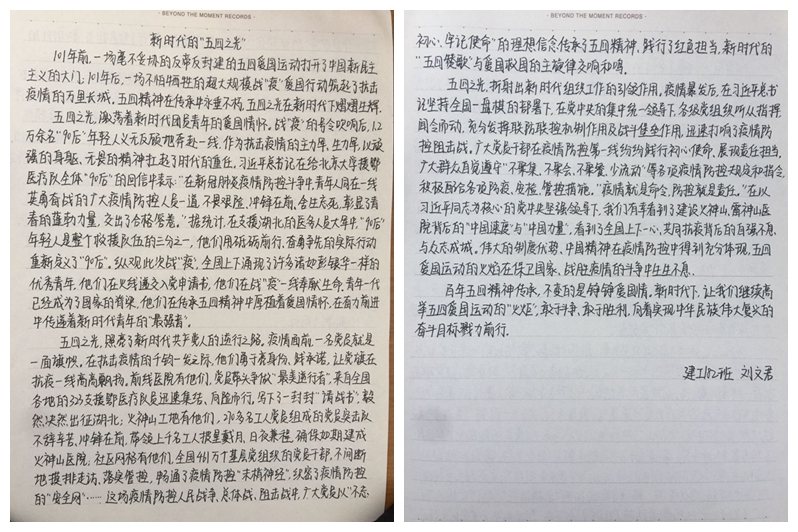 · BEYOND THE MOMENT RECORDS ·
新时代的“五四之光”
101年前，一场毫不妥协的反帝反封建的五四爱国运动打开了中国新民主
主义的大门，101年后，一场不怕牺牲的超大规模战“疫”爱国行动筑起了抗击
疫情的万里长城。五四精神在传承中永垂不朽，五四之光在新时代下熠熠生辉。
五四之光，激荡着新时代团员青年的爱国情怀。战“疫”的号令吹响后，1.2
万余名“90后”年轻人义无反顾地奔赴一线，作为抗击疫情的主力军、生力军，以顽
强的身躯、无畏的精神扛起了时代的重任。习近平总书记在给北京大学援鄂
医疗队全体“90后”的回信中表示：“在新冠肺炎疫情防控斗争中，青年人同在一线
英勇奋战的广大疫情防控人员一道，不畏艰险、冲锋在前、舍生忘死，彰显了青
春的蓬勃力量，交出了合格答卷。”据统计，在支援湖北的医务人员大军中，“90后”
年轻人是整个救援队伍的三分之一，他们用砥砺前行、奋勇争先的实际行动
重新定义了“90后”。纵观此次战“疫”，全国上下涌现了许多诸如彭银华一样的
优秀青年，他们在火线递交入党申请书，他们在战“疫”一线奉献生命，青年一代
已经成为了国家的脊梁，他们在传承五四精神中厚植着爱国情怀，在奋力前进
中传递着新时代青年的“最强音”。
五四之光，照亮了新时代共产党人的逆行之路。疫情面前，一名党员就是
一面旗帜。在抗击疫情的千钧一发之际，他们勇于亮身份、践承诺，让党旗在
抗疫一线高高飘扬。前线医院有他们，党员带头争做“最美逆行者”，来自全国
各地的323支援鄂医疗队员迅速集结、向险而行，写下了一封封“请战书”，毅
然决然出征湖北；火神山工地有他们，240多名工人党员组成的党员突击队
不辞辛苦、冲锋在前，带领上千名工人披星戴月、日夜兼程，确保如期建成
火神山医院，社区网格有他们，全国461万个基层党组织的党员干部，不间断
地摸排走访，落实管控，畅通了疫情防控“末梢神经”，织密了疫情防控
的“安全网”……这场疫情防控人民战争、总体战、阻击战中，广大党员以“不忘
· BEYOND THE MOMENT RECORDS ·
初心、牢记使命”的理想信念传承了五四精神，践行了红色担当，新时代的
“五四赞歌”与爱国救国的主旋律交响和鸣。
五四之光，折射出新时代组织工作的引领作用，疫情暴发后，在习近平总书
记坚持全国一盘棋的部署下，在党中央的集中统一领导下，各级党组织听从指挥、
闻令而动，充分发挥联防联控机制作用及战斗堡垒作用，迅速打响了疫情防
控阻击战。广大党员干部在疫情防控第一线纷纷践行初心使命、展现责任担当，
广大群众自觉遵守“不聚集、不聚会、不聚餐、少流动”等各项疫情防控规定和指令，
积极配合各项防疫、免检、管控措施。“疫情就是命令，防控就是责任。”在以
习近平同志为核心的党中央坚强领导下，我们有幸看到了建设火神山、雷神山医
院背后的“中国速度”与“中国力量”，看到了全国上下一心、共同抗疫背后的自强不息
与众志成城。伟大的制度优势、中国精神在疫情防控中得到充分体现，五四
爱国运动的火焰在保卫国家、战胜疫情的斗争中生生不息。
百年五四精神传承，不变的是铮铮爱国情。新时代下，让我们继续高
举五四爱国运动的“火炬”，敢于斗争、敢于胜利，向着实现中华民族伟大复兴的
奋斗目标戮力前行。
建工182班 刘文君